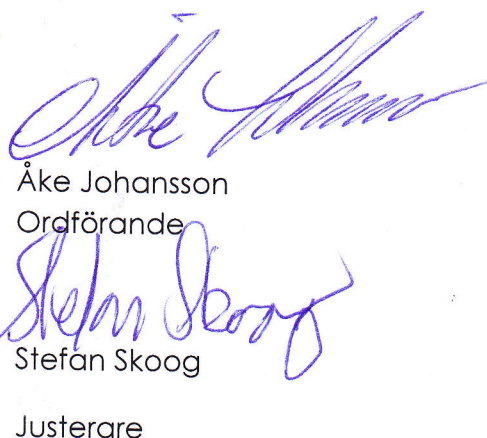 Åke Johansson
Åke Johansson
Ordförande
Stefan Skoog
Stefan Skoog
Justerare